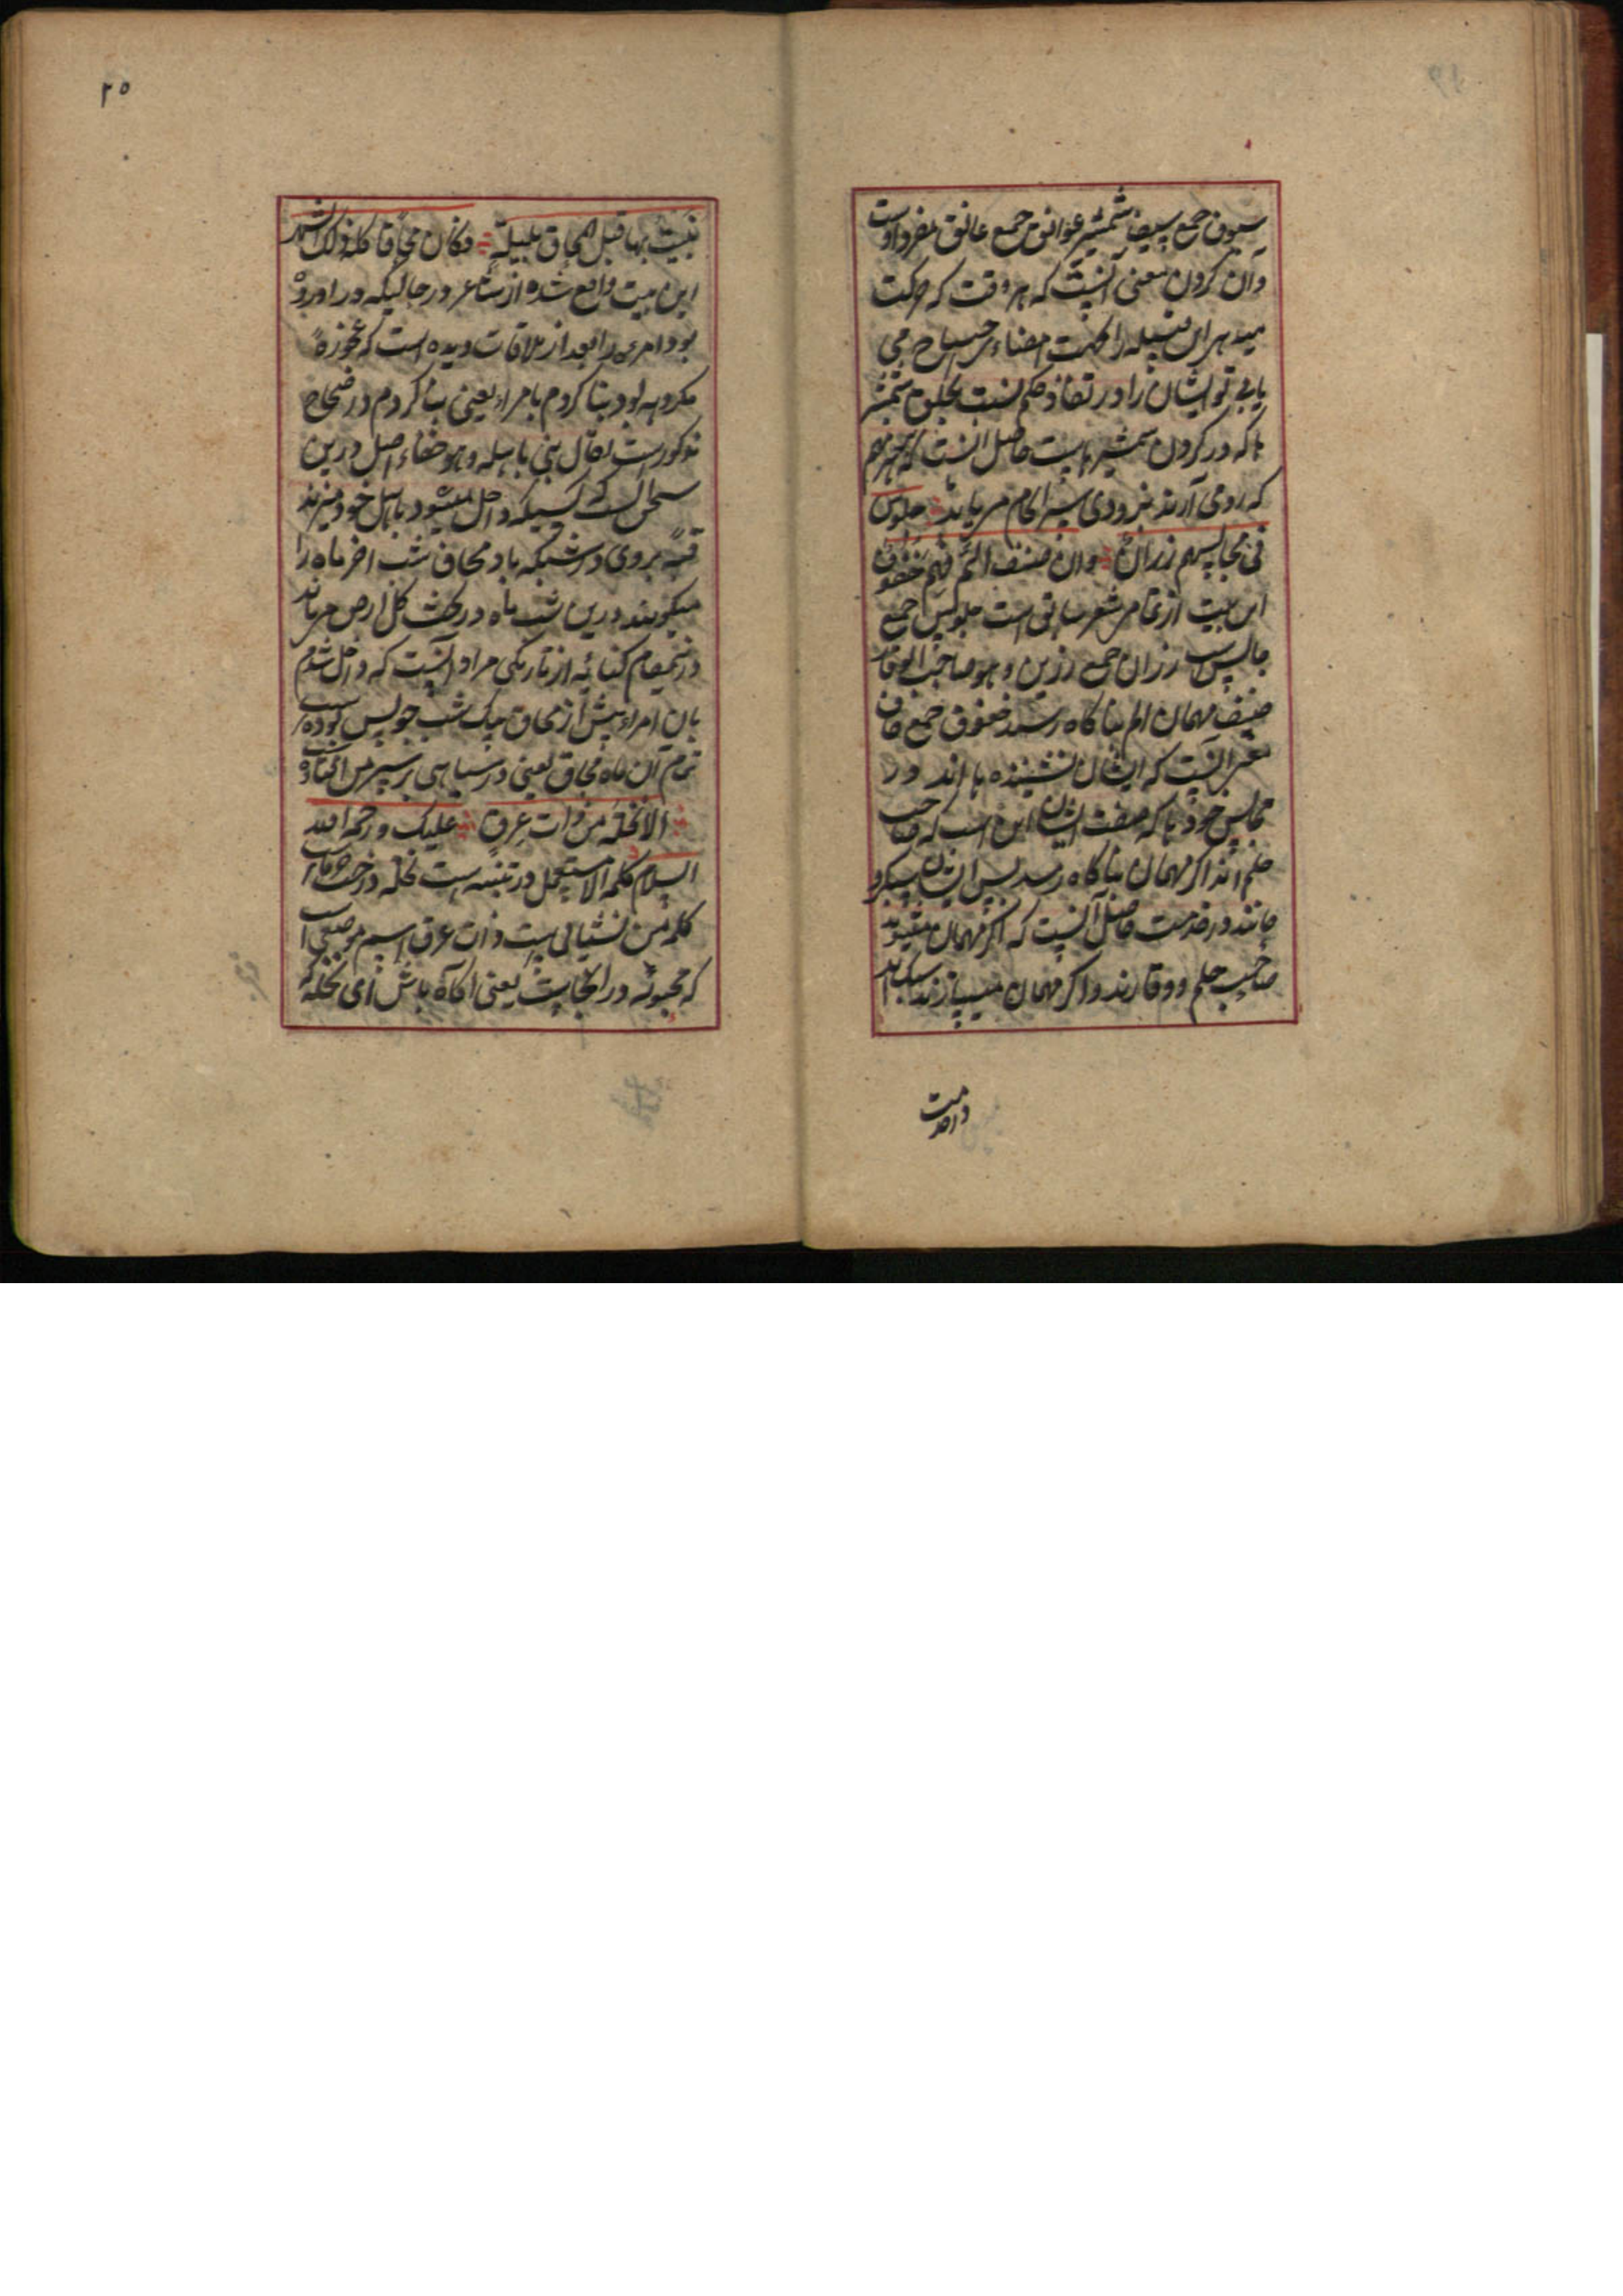 سیوف جمع سیف شمشیر عواتق جمع عاتق مفرد اوست
و آن گردن معنی آنست که هر وقت که حرکت
میدهد این قبیله را جهت امضاء
یابی تو ایشان را در نفاذ حکم شمشیر
ها که در گردن شمشیر هاست حاصل آنست که
که روی آرند بزودی سر انجام میرباید جلوس
فی مجالسهم رزان وان ضیف الم فهم خفوف
این بیت از تمام شعر ساتی است جلوس جمع
جالس است رزان جمع رزین و هو صاحب الوقار
ضیف مهمان الم بناگاه رسید خفوف جمع خاف
معنی آنست که ایشان نشیننده ها اند در
مجالس خودها که صفت ایشان این است که صاحب
حلم اند اگر مهمان بناگاه رسد پس ایشان سبکرو
مانند در خدمت حاصل آنست که اگر مهمان میشوند
صاحب حلم و وقارند و اگر مهمان میسازند سبک اند
در خدمت
۲۵
بنیت بها قبل المحاق بلیلة فکان محاقا کله ذلک الشهر
این بیت واقع شده از شاعر در حالیکه در آورده
بود امرءه را بعد از ملاقات دیده است که عجوزه
مکروهه بود بنا کردم بامراه یعنی بنا کردم در صحاح
مذکورست یقال بنی باهله و هو خطاء اصل درین
سخن آنست که کسیکه داخل میشود باهل خود میزند
قبه بروی در شبیکه باد محاق شب آخر ماه را
میگویند درین شب ماه در تحت کل ارض میماند
درینمقام کنایه از تاریکی مراد آنست که داخل شدم
بان امراه پیش از محاق بیک شب چو پس بوده است
تمام آن ماه محاق یعنی در سیاهی بر سر من افتاده
الا نخلة من ذات عرق علیک ورحمة الله
السلام کلمه الا مستعمل در تنبیه است نخله درخت خرماست
کلمه من نشیالی است ذات عرق اسم موضعی است
که محبوبه در انجاست یعنی آگاه باش ای نخله که